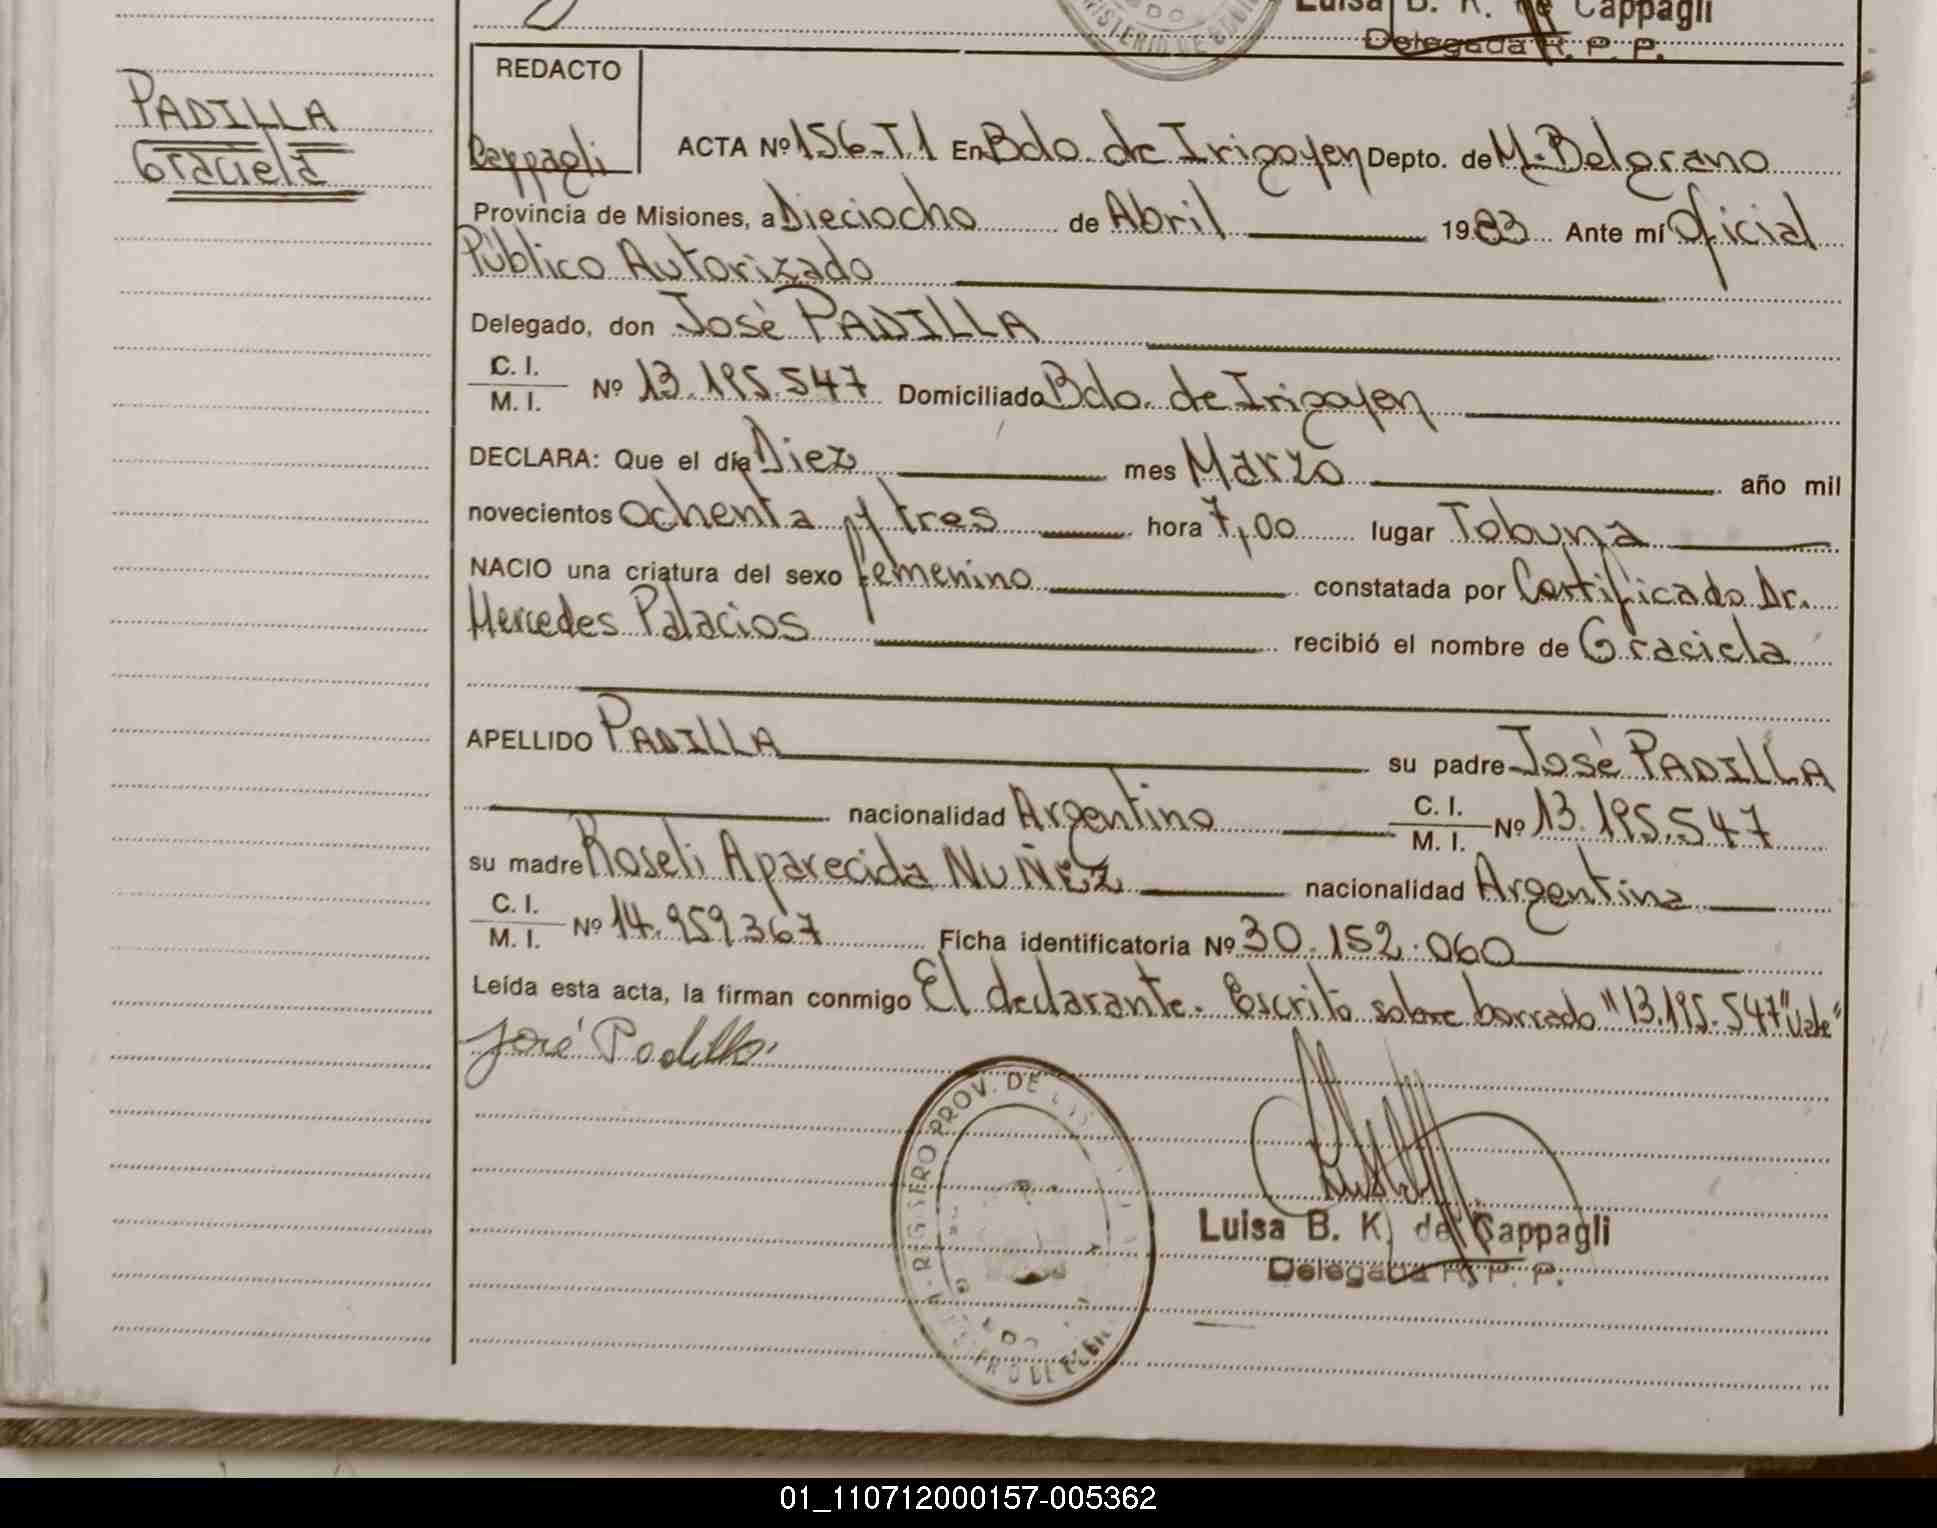 Luisa B. K. de Cappagli
Delegada R. P. P.
PADILLA
Graciela
REDACTO
Cappagli
ACTA Nº 156-T1 En Bdo. de Irigoyen Depto. de M. Belgrano
Provincia de Misiones, a Dieciocho de Abril 1983 Ante mí Oficial
Público Autorizado
Delegado, don José PADILLA
C. I.
M. I. Nº 13.195.547 Domiciliado Bdo. de Irigoyen
DECLARA: Que el día Diez mes Marzo año mil
novecientos ochenta y tres hora 7,00 lugar Tobuna
NACIO una criatura del sexo femenino constatada por Certificado Dr.
Mercedes Palacios recibió el nombre de Graciela
APELLIDO PADILLA su padre José PADILLA
nacionalidad Argentino C. I.
M. I. Nº 13.195.547
su madre Roseli Aparecida NUÑEZ nacionalidad Argentina
C. I.
M. I. Nº 14.959.367 Ficha identificatoria Nº 30.152.060
Leída esta acta, la firman conmigo El declarante. Escrito sobre borrado "13.195.547" Vale"
José Padilla
PROV. DE
Luisa B. K. de Cappagli
Delegada R. P. P.
01_110712000157-005362